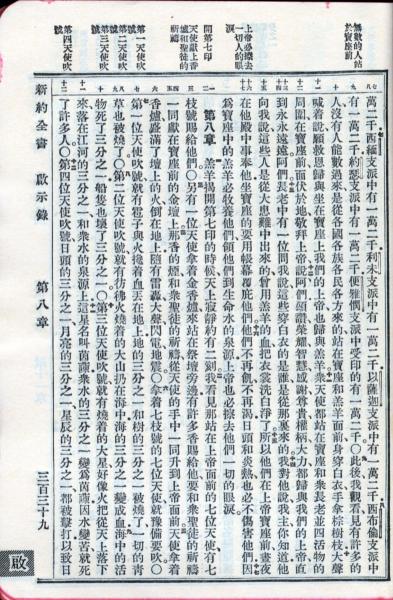 無數的人站
於寶座前
上帝必擦去
一切人的眼
淚
開第七印
天使獻上香
爐和聖徒的
祈禱
第一天使吹
號
第二天使吹
號
第三天使吹
號
第四天使吹
號
萬二千西緬支派中有一萬二千利未支派中有一萬二千以薩迦支派中有一萬二千西布倫支派中
有一萬二千約瑟支派中有一萬二千便雅憫支派中受印的有一萬二千〇此後我觀看見有許多的
人沒有人能數過來是從各國各族各民各方來的站在寶座和羔羊面前身穿白衣手拿棕樹枝大聲
喊着說願救恩歸與坐在寶座上我們的上帝也歸與羔羊衆天使都站在寶座和衆長老並四活物的
周圍在寶座前面伏於地敬拜上帝說阿們頌讚榮耀智慧感謝尊貴權柄大力都歸與我們的上帝直
到永永遠遠阿們長老中有一位問我說這些穿白衣的是誰是從那裏來的我對他說我主你知道他
向我說這些人是從大患難中出來的曾用羔羊的血把衣裳洗白淨了所以他們在上帝寶座前晝夜
在他殿中事奉他坐寶座的要用帳幕覆庇他們他們不再飢不再渴日頭和炎熱也必不傷害他們因
爲寶座中的羔羊必牧養他們領他們到生命水的泉源上帝也必擦去他們一切的眼淚
第八章 羔羊揭開第七印的時候天上寂靜約有二刻我看見那站在上帝面前的七位天使有七
枝號賜給他們〇另有一位天使拿着金香爐來站在祭壇旁邊有許多香賜給他要和衆聖徒的祈禱
一同獻在寶座前的金壇上那香的煙和衆聖徒的祈禱從天使的手中一同升到上帝面前天使拿着
香爐盛滿了壇上的火倒在地上隨有雷轟大聲閃電地震〇拿着七枝號的七位天使就豫備要吹〇
第一位天使吹號就有雹子與火攙着血丟在地上地的三分之一和樹的三分之一被燒了一切的青
草也被燒了〇第二位天使吹號就有彷彿火燒着的大山扔在海中海的三分之一變成血海中的活
物死了三分之一船隻也壞了三分之一〇第三位天使吹號就有燒着的大星好像火把從天上落下
來落在江河的三分之一和衆水的泉源上這星名叫茵蔯衆水的三分之一變爲茵蔯因水變苦就死
了許多人〇第四位天使吹號日頭的三分之一月亮的三分之一星辰的三分之一都被擊打以致日
新約全書 啟示錄 第八章 三百三十九
啟